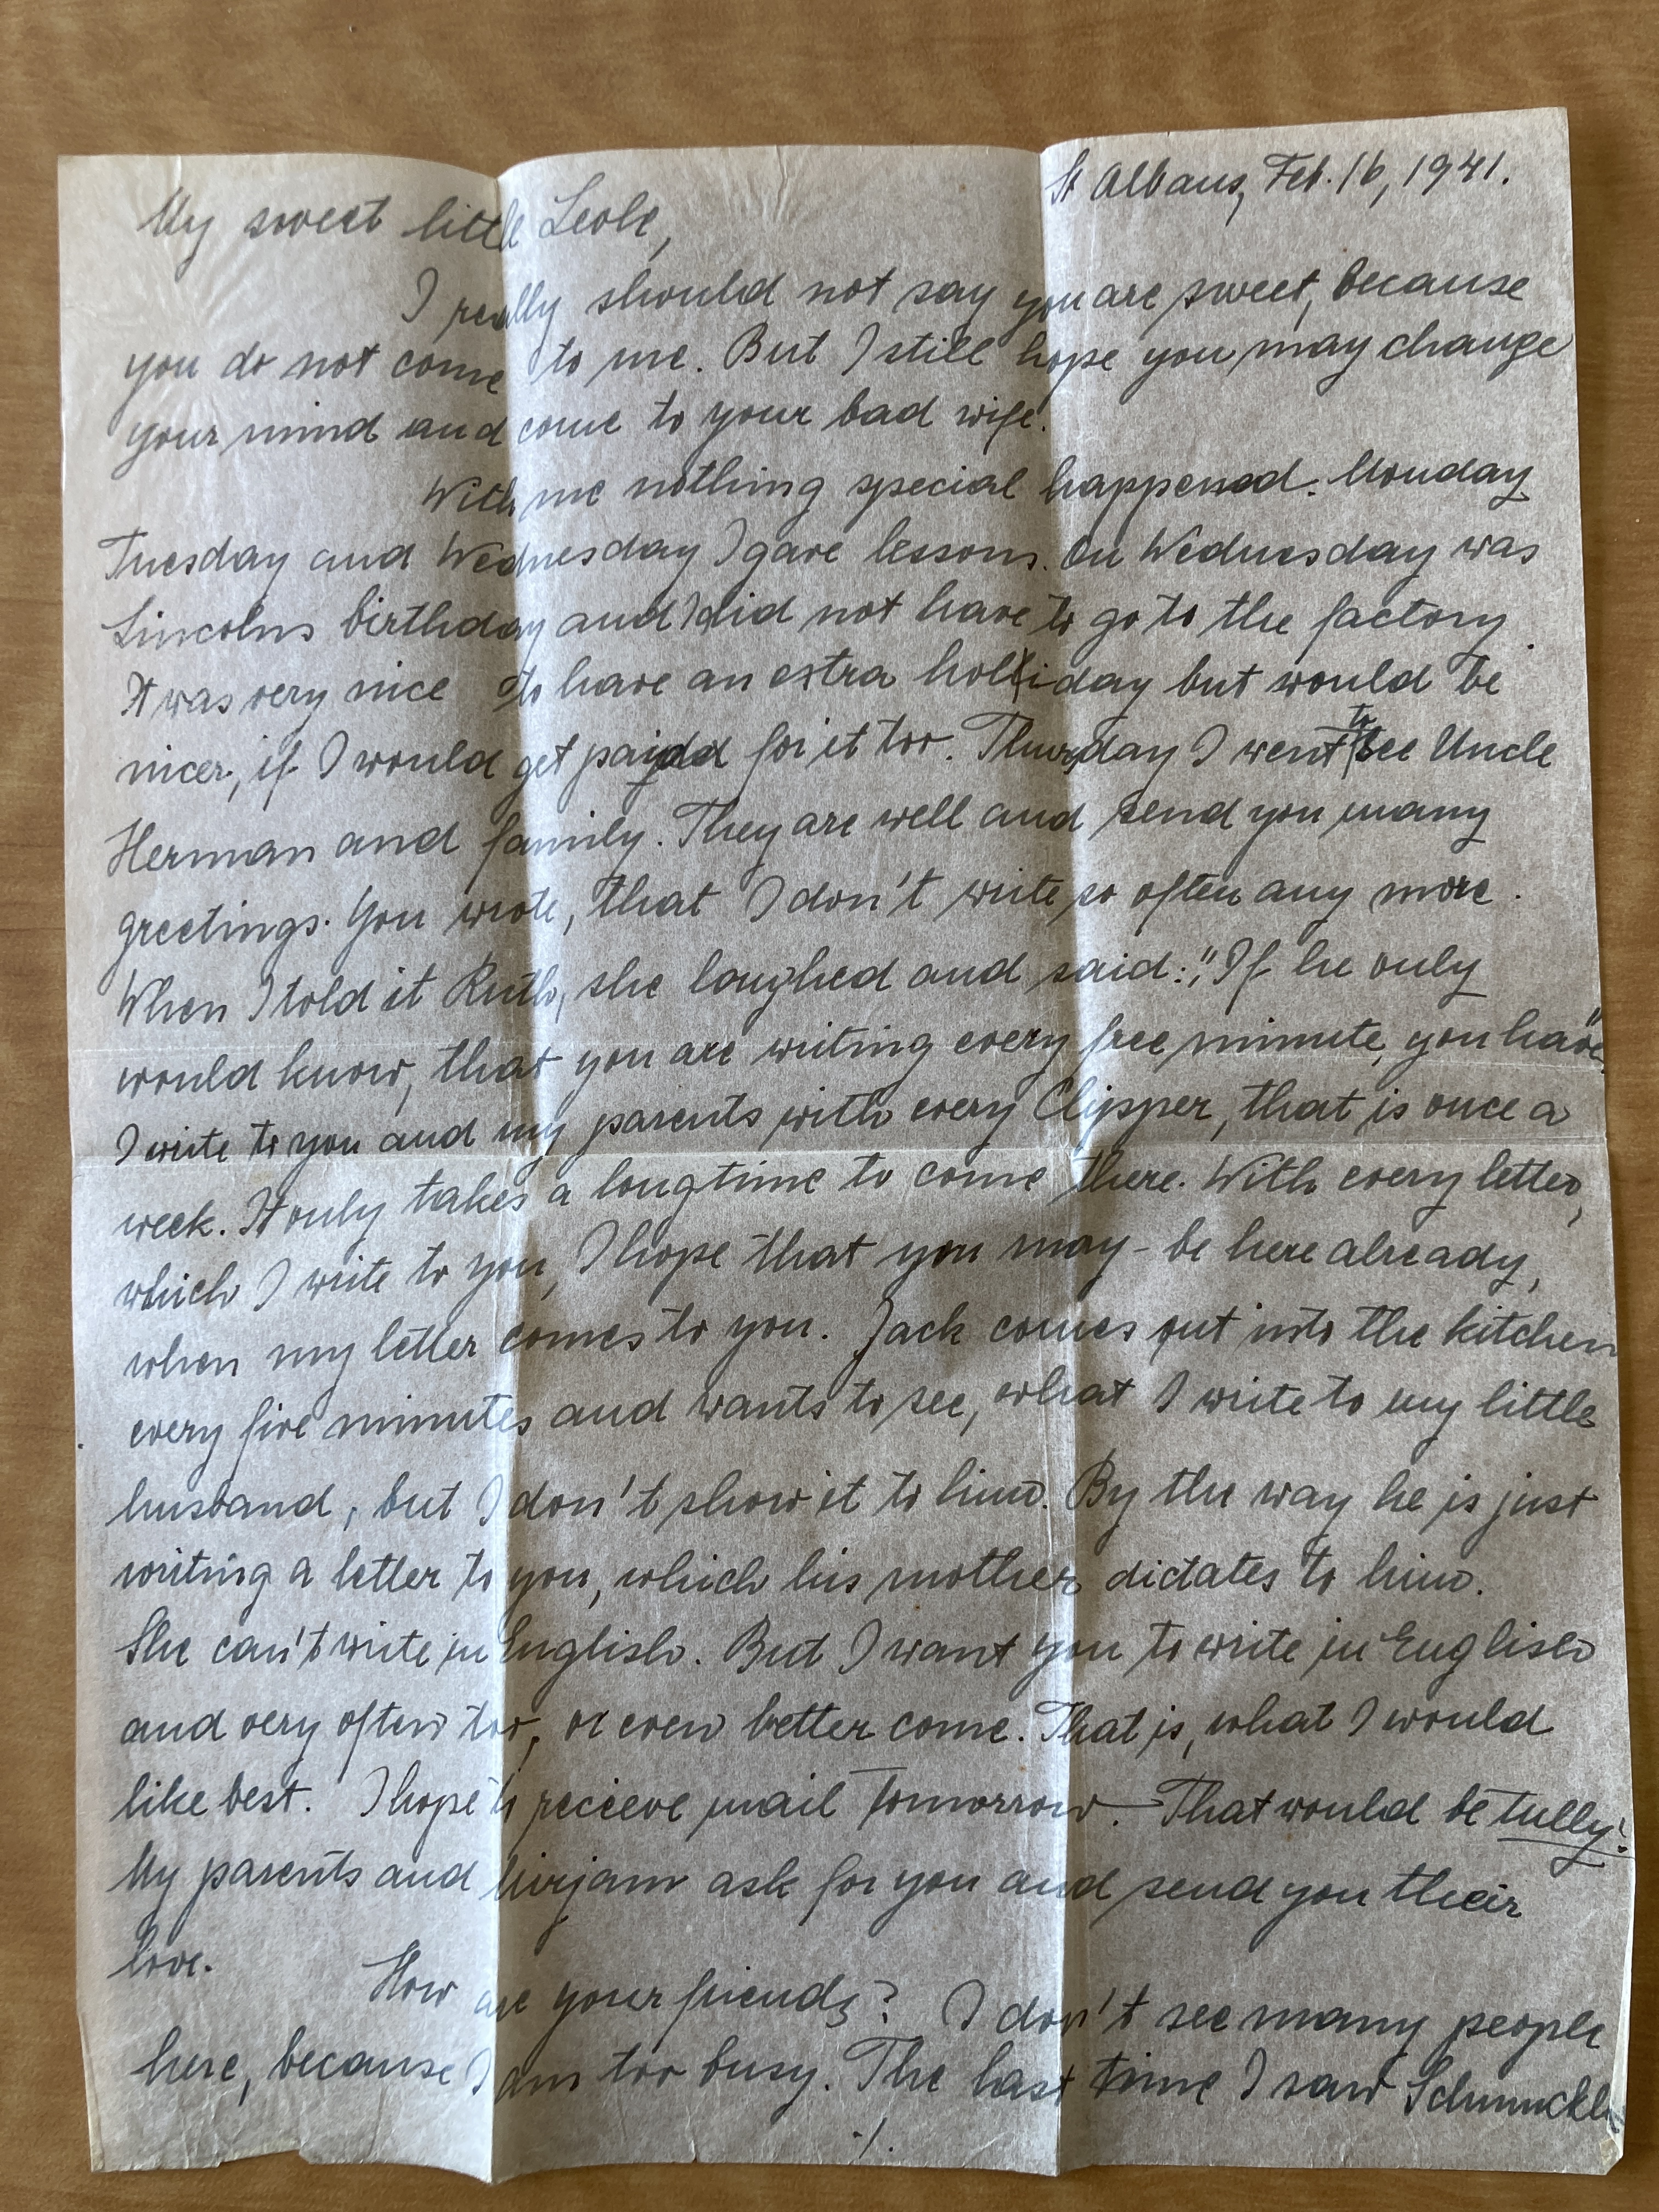 St Albans, Feb. 16, 1941.
My sweet little Leole,
I really should not say you are sweet, because
you do not come to me. But I still hope you may change
your mind and come to your bad wife.
With me nothing special happened. Monday
Tuesday and Wednesday I gave lessons. On Wednesday was
Lincolns birthday and I did not have to go to the factory.
It was very nice to have an extra holiday but would be
nicer, if I would get paid for it too. Thursday I went to see Uncle
Herman and family. They are well and send you many
greetings. You wrote, that I don't write so often any more.
When I told it Ruth, she laughed and said: "If he only
would know, that you are writing every free minute, you have"
I write to you and my parents with every Clipper, that is once a
week. It only takes a longtime to come there. With every letter,
which I write to you, I hope that you may - be here already,
when my letter comes to you. Jack comes out into the kitchen
every five minutes and wants to see, what I write to my little
husband, but I don't show it to him. By the way he is just
writing a letter to you, which his mother dictates to him.
She can't write in English. But I want you to write in English
and very often too, or even better come. That is, what I would
like best. I hope to recieve mail tomorrow. — That would be tully!
My parents and Mirjam ask for you and send you their
love.
How are your friends? I don't see many people
here, because I am too busy. The last time I saw
./.